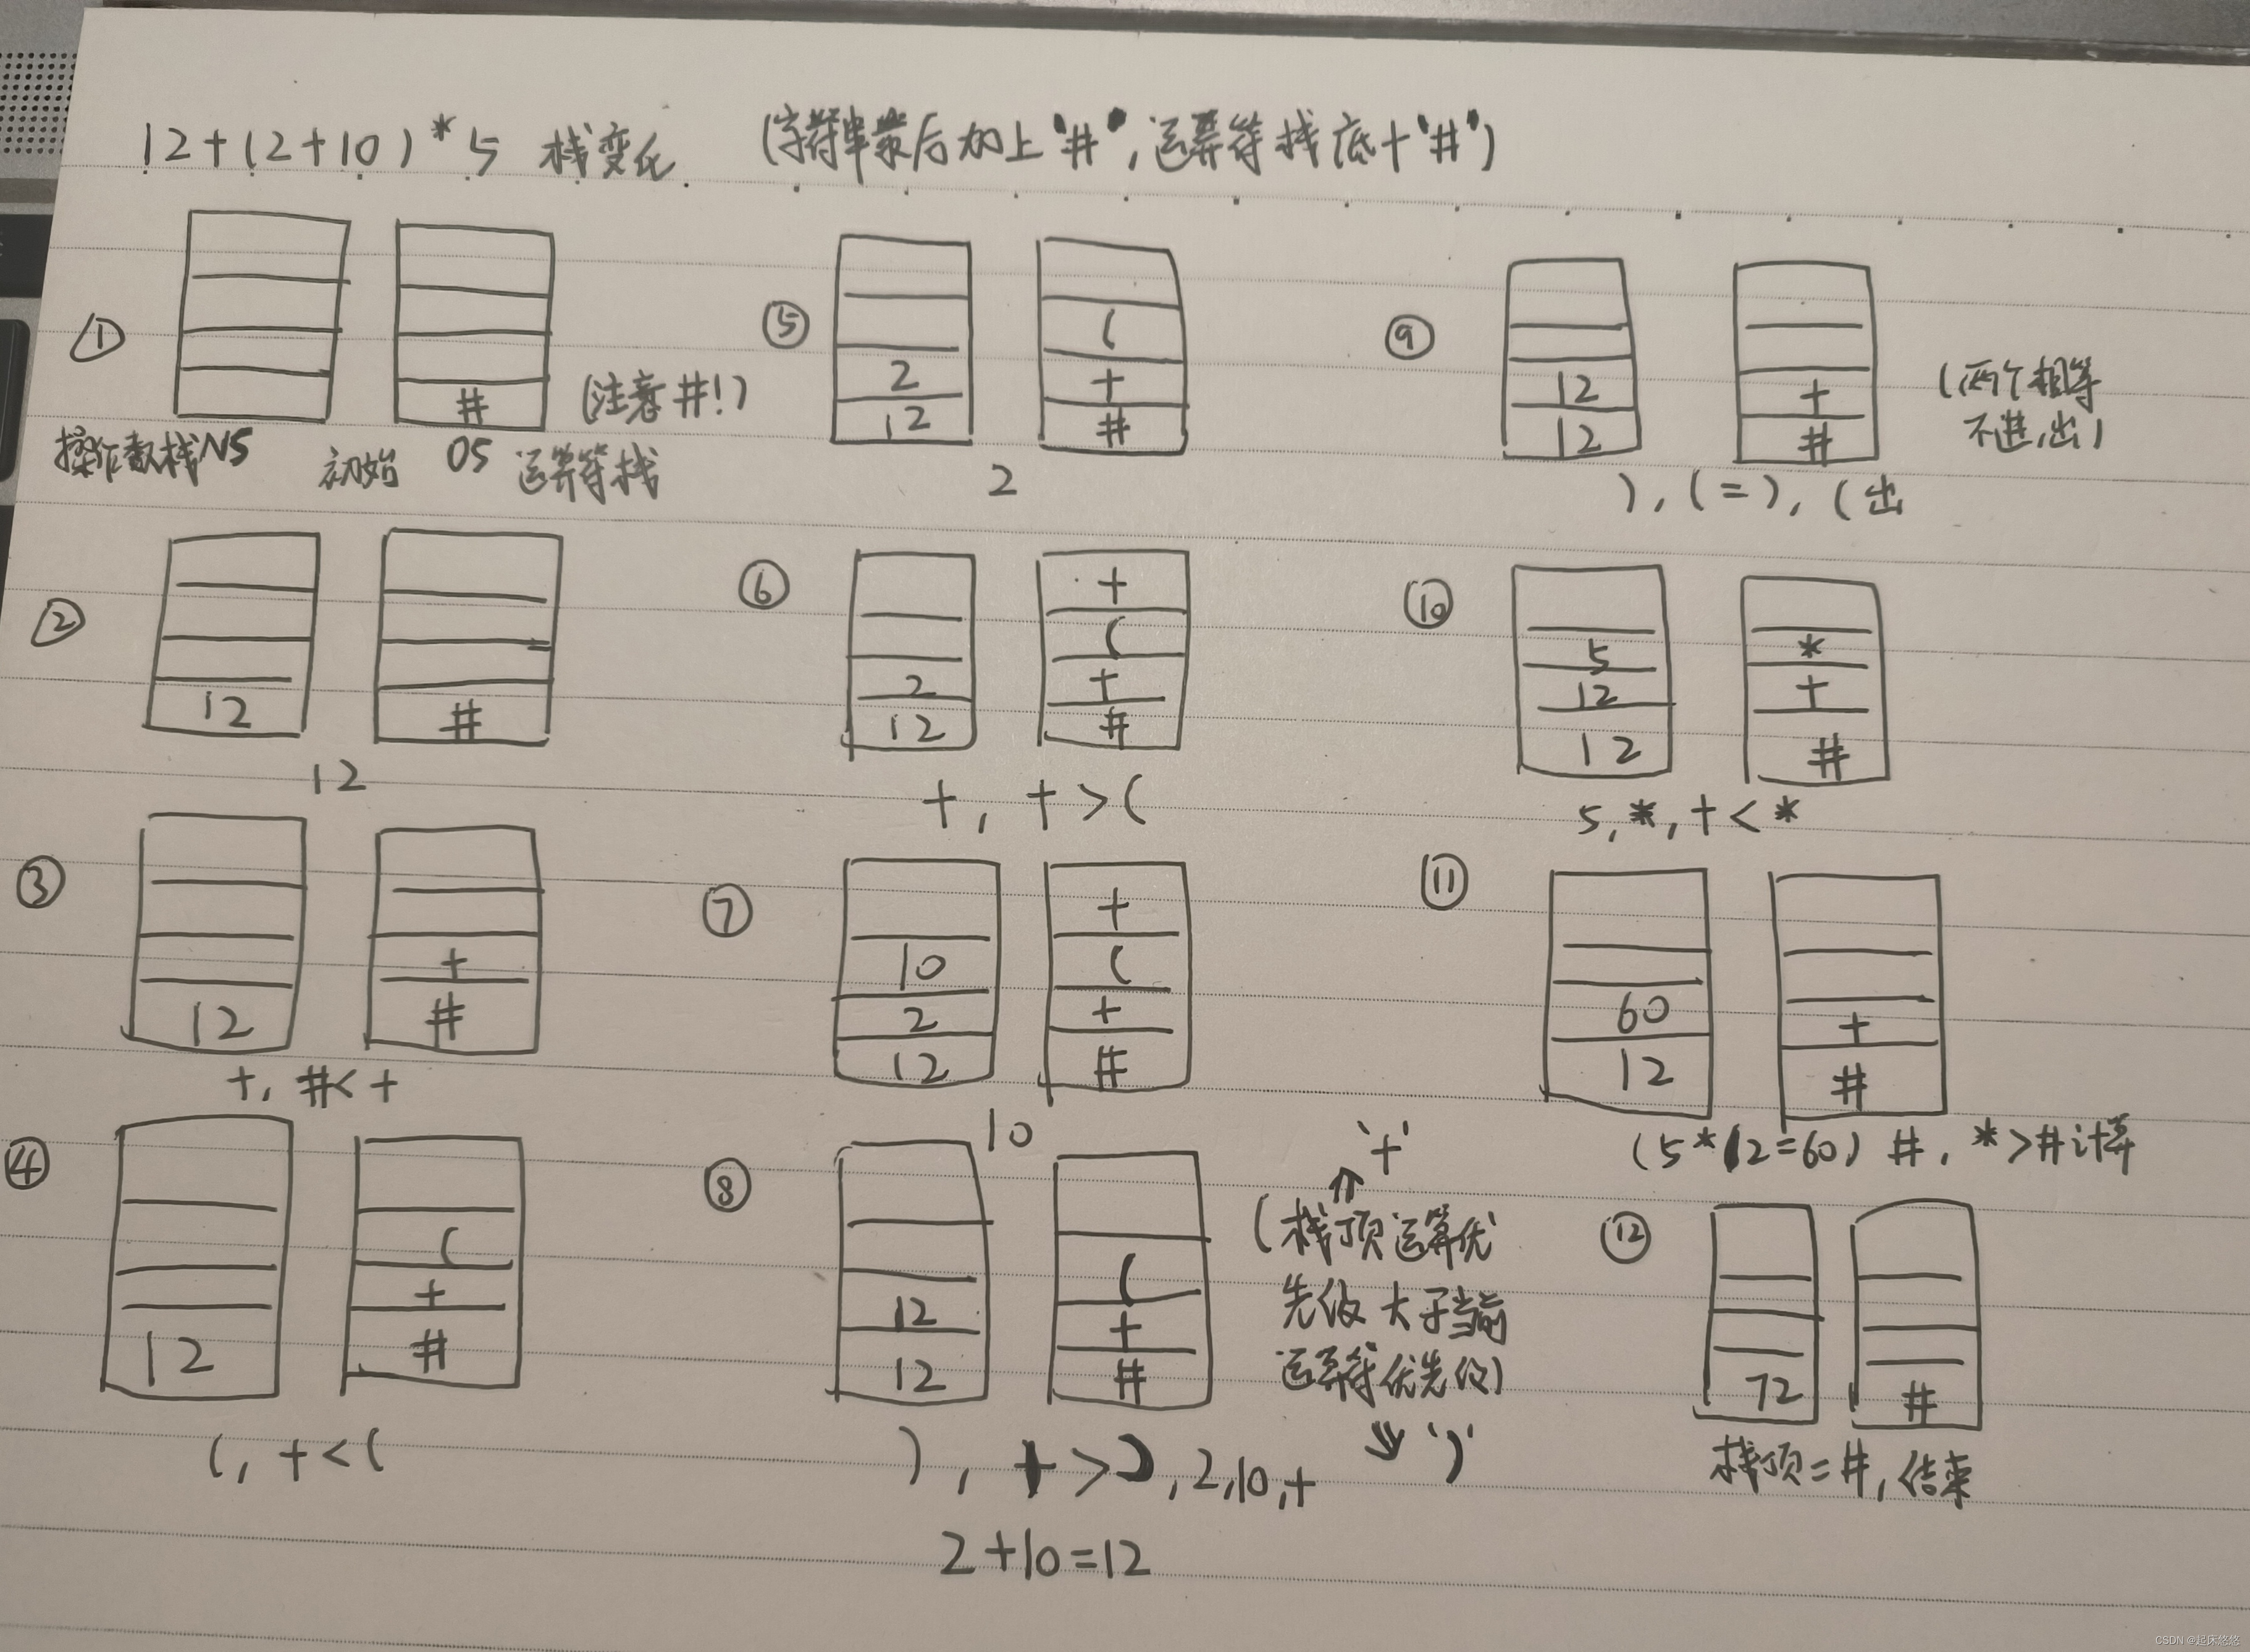 12+(2+10)*5 栈变化. (字符串最后加上'#',运算符栈底+'#')
①
#
(注意#!)
操作数栈NS 初始 OS 运算符栈
②
12
#
12
③
12
+
#
+, #<+
④
12
(
+
#
(, +<(
⑤
2
12
(
+
#
2
⑥
2
12
+
(
+
#
+, +>(
⑦
10
2
12
+
(
+
#
10
⑧
12
12
(
+
#
'+'
(栈顶运算优
先级大于当前
运算符优先级)
')'
), +>),2,10,+
2+10=12
⑨
12
12
+
#
(两个相等
不进,出)
),(=),(出
⑩
5
12
12
*
+
#
5,*,+<*
⑪
60
12
+
#
(5*12=60) #, *>#计算
⑫
72
#
栈顶=#,结束
CSDN @起床悠悠